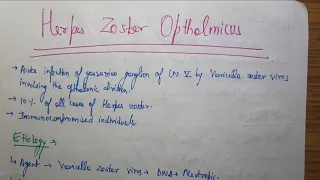 Herpes Zoster Opthalmicus
→ Acute infection of gasserian ganglion of CN V by Varicella zoster virus
involving the opthalmic division.
→ 10% of all cases of Herpes zoster.
→ Immunocompromised individuals.
Etiology →
→ Agent → Varicella zoster virus → DNA → Neutrophic.